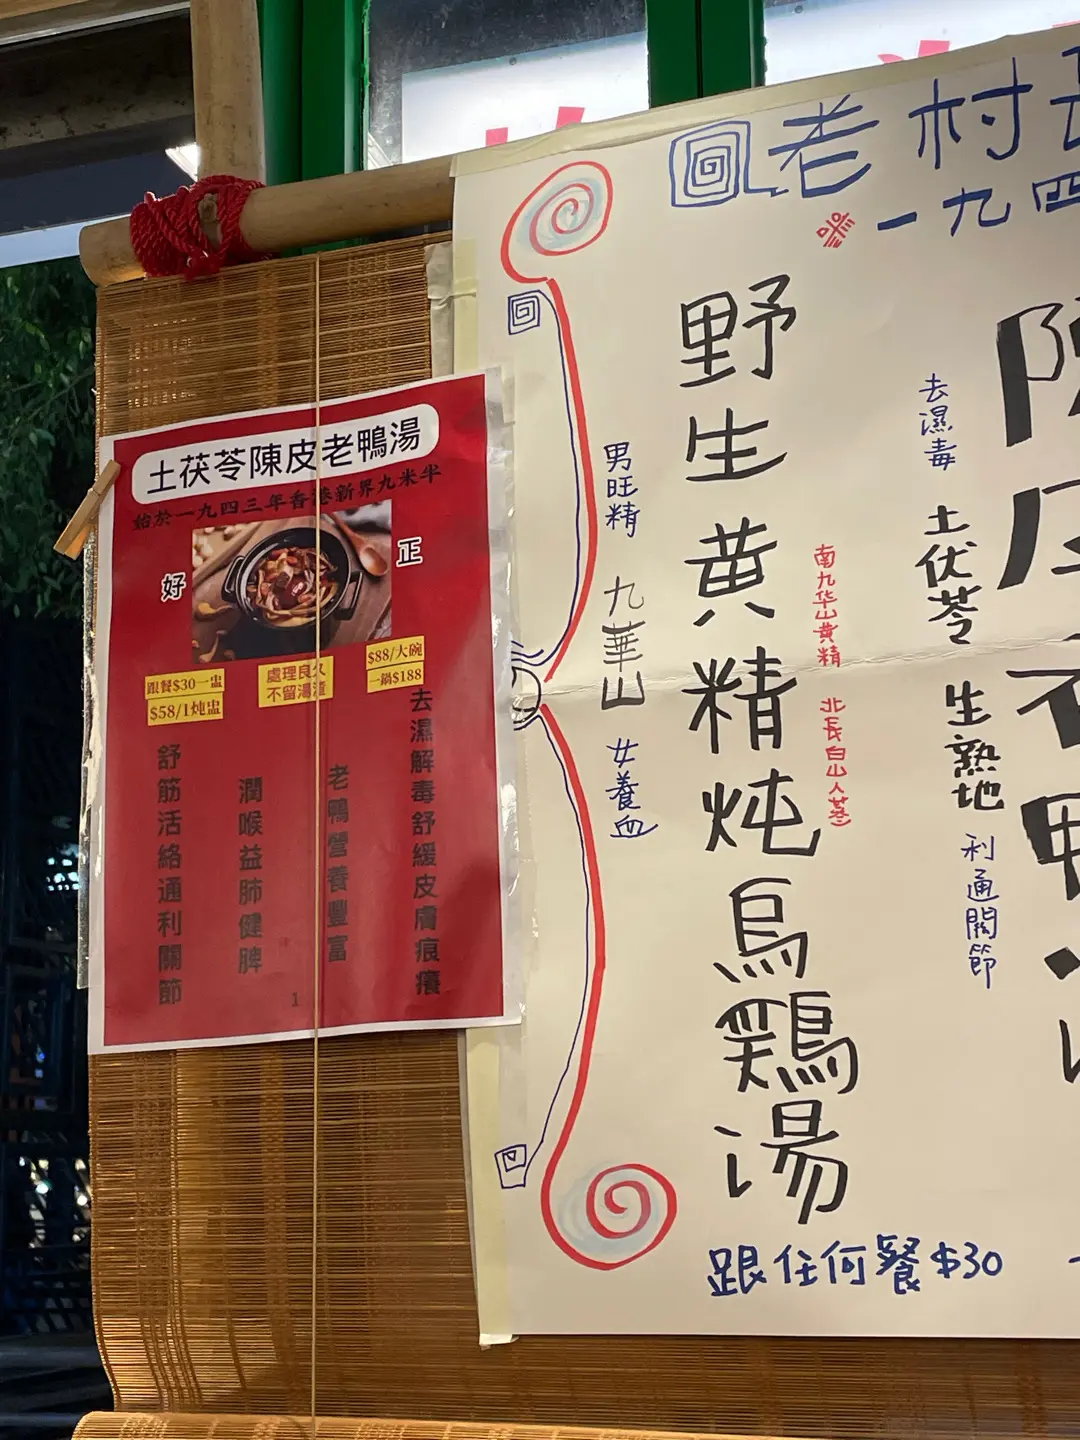 土茯苓陳皮老鴨湯
始於一九四三年香港新界九米半
好
正
跟餐$30一盅
$58/1炖盅
處理良久
不留湯渣
$88/大碗
一鍋$188
去濕解毒舒緩皮膚痕癢
老鴨營養豐富
潤喉益肺健脾
舒筋活絡通利關節
1
回老村
一九四
去濕毒
土茯苓
生熟地
利通関節
南九华山黄精
北長白山人葠
野生黄精炖烏鶏湯
男旺精
九華山
女養血
跟任何餐$30